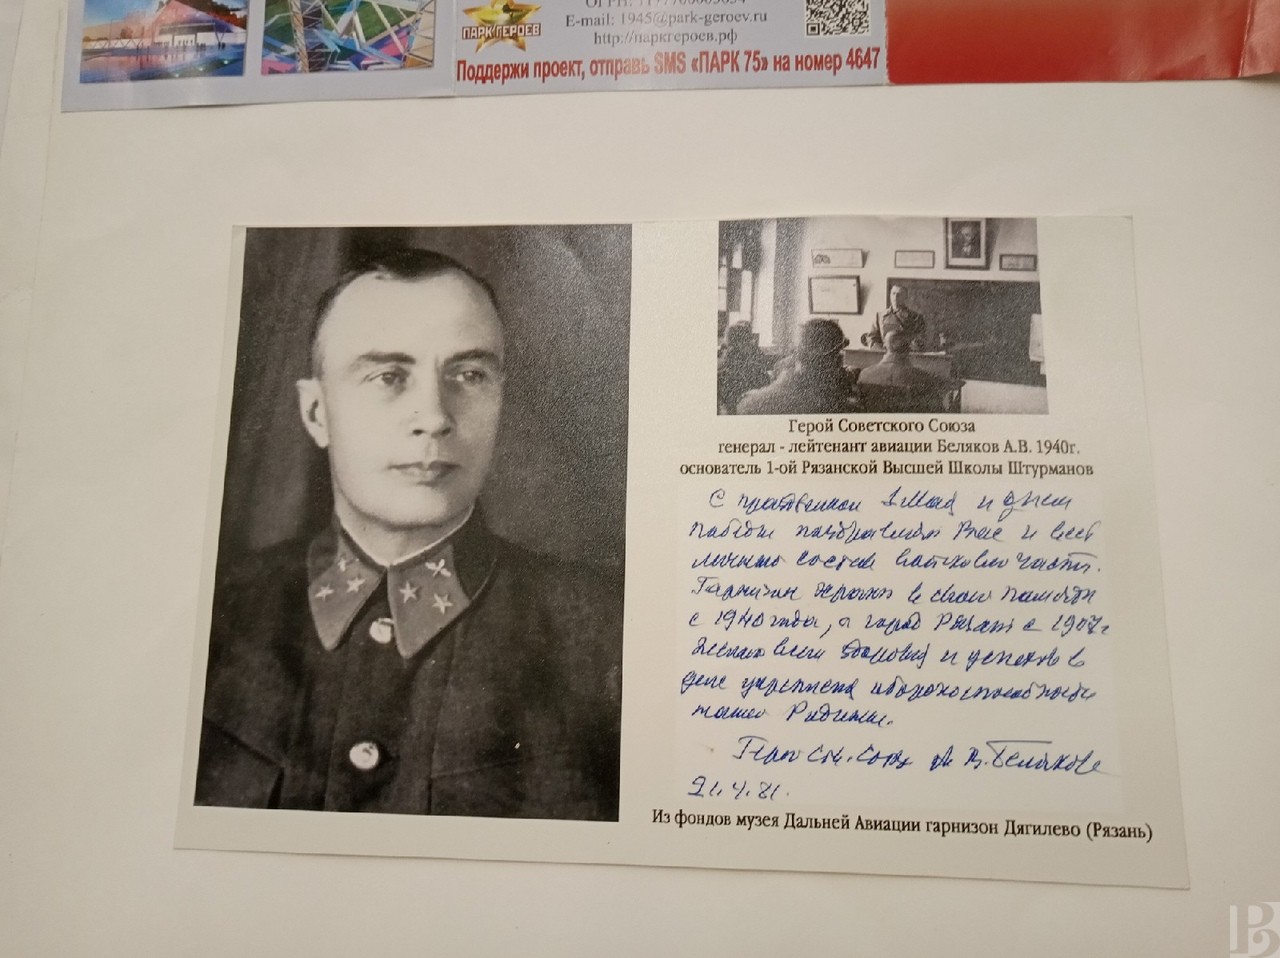 E-mail: 1945@park-geroev.ru
http://паркгероев.рф
ПАРК ГЕРОЕВ
Поддержи проект, отправь SMS «ПАРК 75» на номер 4647
Герой Советского Союза
генерал - лейтенант авиации Беляков А.В. 1940г.
основатель 1-ой Рязанской Высшей Школы Штурманов
С праздником 1 Мая и днем
победы поздравляю Вас и весь
личный состав войсковой части.
Гарнизон храню в своей памяти
с 1940 года, а город Рязань с 1907г
Желаю всем здоровья и успехов в
деле укрепления обороноспособности
нашей Родины.
Герой Сов. Союза А В. Беляков
21.4.81.
Из фондов музея Дальней Авиации гарнизон Дягилево (Рязань)